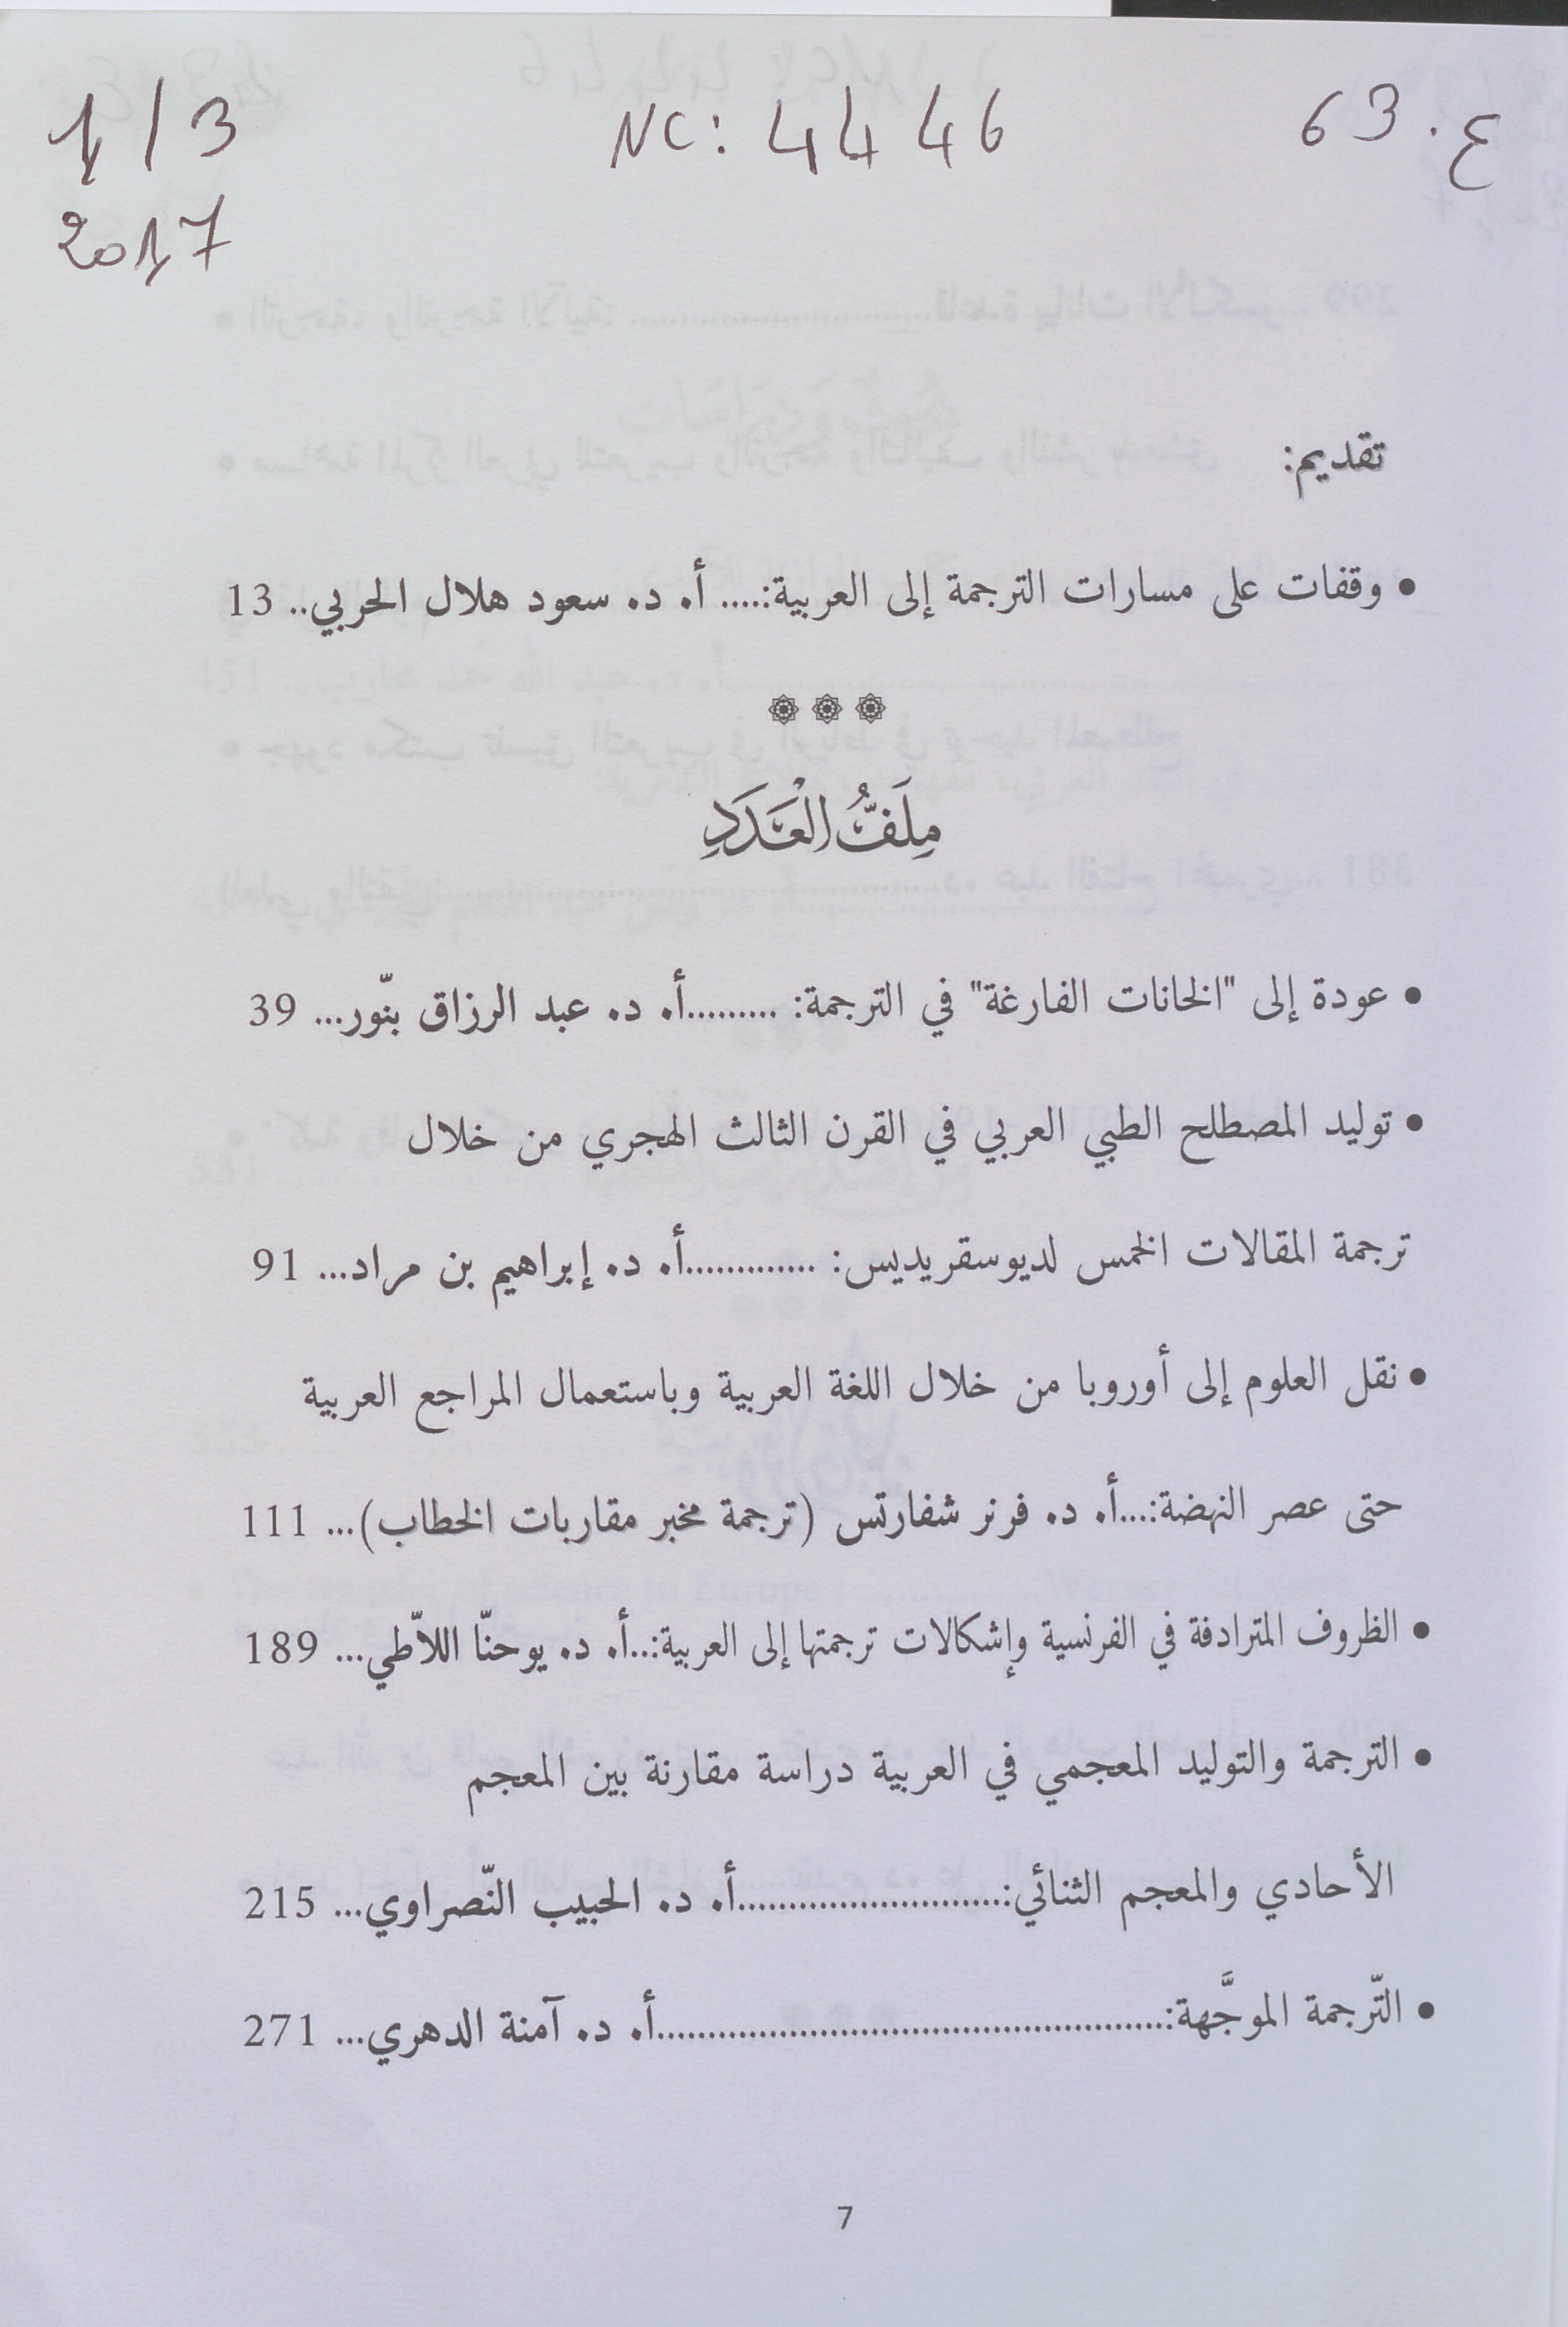 ع. 63 NC: 4446 1/3
2017
تقديم:
• وقفات على مسارات الترجمة إلى العربية:.... أ. د. سعود هلال الحربي.. 13
مِلَفُّ الْعَدَدِ
• عودة إلى "الخانات الفارغة" في الترجمة: .........أ. د. عبد الرزاق بنّور... 39
• توليد المصطلح الطبي العربي في القرن الثالث الهجري من خلال
ترجمة المقالات الخمس لديوسقريديس: .............أ. د. إبراهيم بن مراد... 91
• نقل العلوم إلى أوروبا من خلال اللغة العربية وباستعمال المراجع العربية
حتى عصر النهضة:...أ. د. فرنر شفارتس (ترجمة مخبر مقاربات الخطاب)... 111
• الظروف المترادفة في الفرنسية وإشكالات ترجمتها إلى العربية:..أ. د. يوحنّا اللاّطي... 189
• الترجمة والتوليد المعجمي في العربية دراسة مقارنة بين المعجم
الأحادي والمعجم الثنائي:..........................أ. د. الحبيب النّصراوي... 215
• التّرجمة الموجَّهة:..................................................أ. د. آمنة الدهري... 271
7